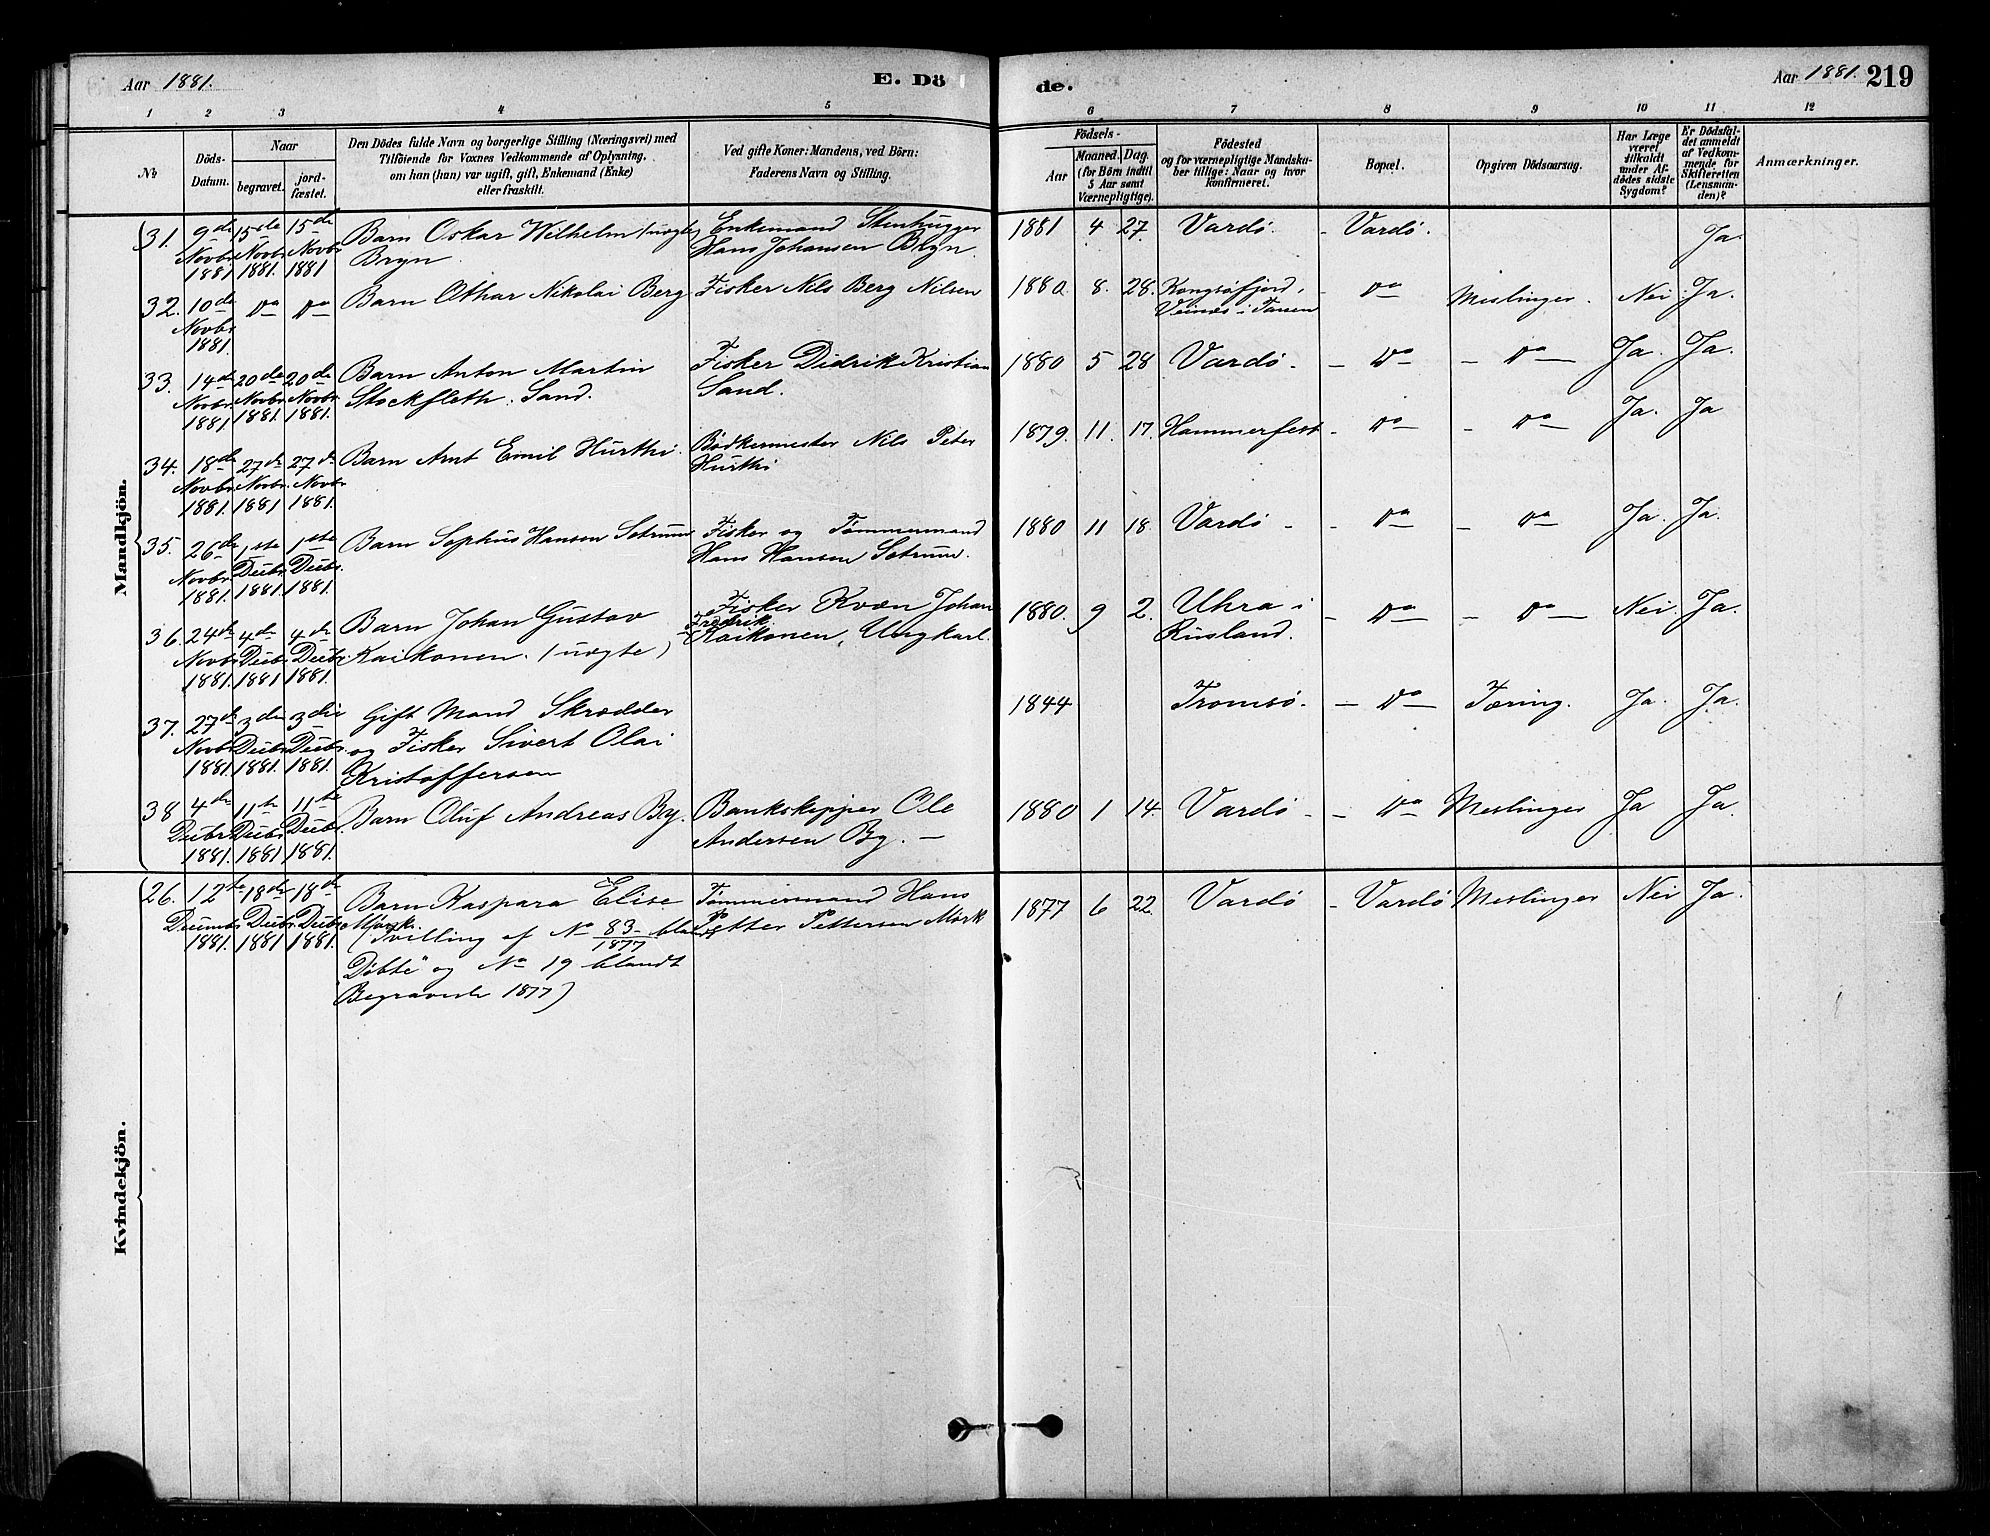 Aar 1881. E. Dö
de. Aar 1881. 219
1 2 3 4 5 6 7 8 9 10 11 12
No
Döds-Datum.
Naar
begravet. jord-fæstet.
Den Dödes fulde Navn og borgerlige Stilling (Næringsvei) med
Tilföiende for Voxnes Vedkommende af Oplysning,
om han (hun) var ugift, gift, Enkemand (Enke)
eller fraskilt.
Ved gifte Koner: Mandens, ved Börn:
Faderens Navn og Stilling.
Födsels-
Aar Maaned. Dag.
(for Börn indtil
5 Aar samt
Værnepligtige).
Födested
og for værnepligtige Mandska-
ber tillige: Naar og hvor
konfirmeret.
Bopæl.
Opgiven Dödsaarsag.
Har Læge
været
tilkaldt
under Af-
dödes sidste
Sygdom?
Er Dödsfal-
det anmeldt
af Vedkom-
mende for
Skifteretten
(Lensman-
den)?
Anmærkninger.
Mandkjön.
31. 9de 15de 15de Barn Oskar Wilhelm (uægte) Enkemand Stenhugger 1881 4 27. Vardö. - Vardö. Ja.
Novbr Novbr Novbr Bryn. Hans Johansen Bryn.
1881 1881. 1881
32. 10de Do Do Barn Othar Nikolai Berg Fisker Nils Berg Nilsen 1880. 8. 28. Kongsöfjord, - Do Meslinger. Nei. Ja.
Novbr Veines i Tanen
1881.
33. 14de 20de 20de Barn Anton Martin Fisker Didrik Kristian 1880 5 28 Vardö. - Do - Do Ja. Ja.
Novbr Novbr. Novbr. Stockfleth Sand. Sand.
1881 1881. 1881.
34. 18de 27de 27de Barn Arnt Emil Hurthi. Bödkermester Nils Peter 1879. 11. 17. Hammerfest - Do - Do Ja. Ja
Novbr Novbr. Novbr Hurthi
1881. 1881 1881.
35. 26de 1ste 1ste Barn Sophus Hansen Sotrum Fisker og Tömmermand 1880 11 18. Vardö - - Do - Do Ja. Ja.
Novbr. Decbr Decbr. Hans Hansen Sotrum.
1881. 1881. 1881.
36. 24de 4de 4de Barn Johan Gustav Fisker Kvæn Johan 1880. 9 2. Uhra i - Do - Do Nei Ja.
Novbr Decbr. Decbr Kaikonen. (uægte) Fredrik Kaikonen, Ungkarl. Rusland.
1881. 1881 1881.
37. 27de 3die 3die Gift Mand Skrædder 1844 Tromsö. - Do Tæring. Ja. Ja.
Novbr Decbr Decbr. og Fisker Sivert Olai
1881. 1881. 1881. Kristoffersen
38 4de 11te 11te Barn Oluf Andreas By. Bankskipper Ole 1880 1 14. Vardö - - Do Meslinger Ja Ja.
Decbr Decbr Decbr. Andersen By. -
1881. 1881 1881.
Kvindekjön.
26. 12te 18de 18de Barn Kaspara Elise Tömmermand Hans 1877 6 22. Vardö - Vardö Meslinger Nei Ja.
Decbr Decbr. Mörk. Petter Pettersen Mörk
1881. 1881 1881. (Tvilling af No 83/1877 blandt
Döbte" og No 19 blandt
Begravede 1877)